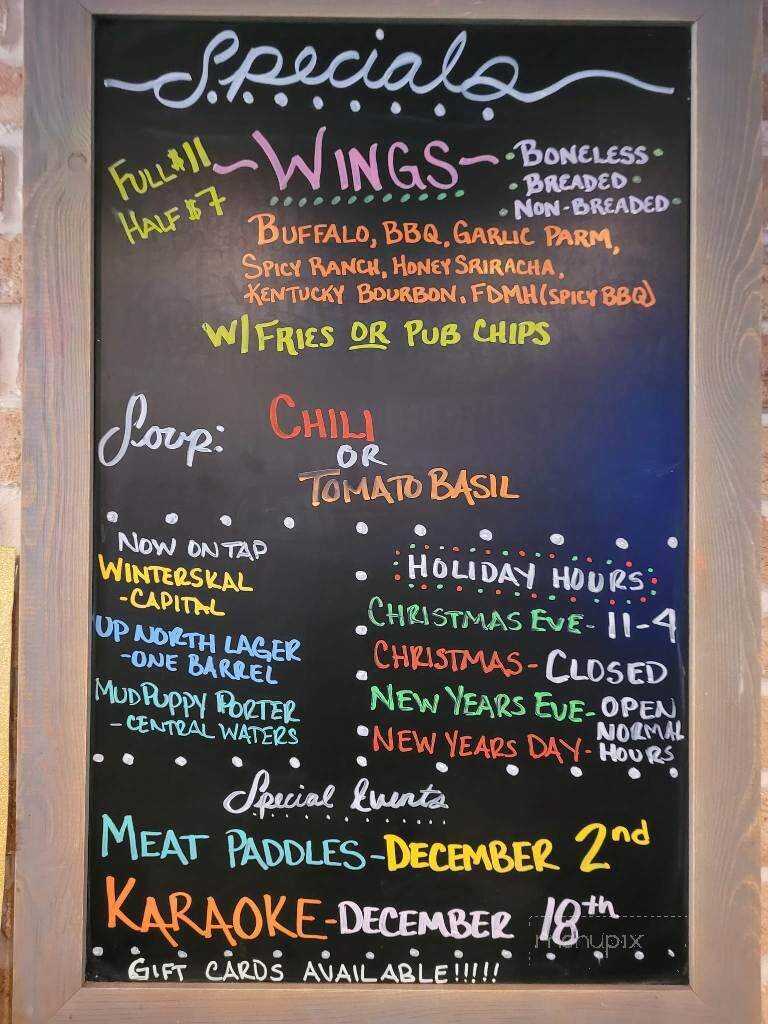 Specials
FULL $11
HALF $7
~WINGS~
• BONELESS •
• BREADED •
• NON-BREADED •
BUFFALO, BBQ, GARLIC PARM,
SPICY RANCH, HONEY SRIRACHA,
KENTUCKY BOURBON, FDMH (SPICY BBQ)
W/ FRIES OR PUB CHIPS
Soup: CHILI
OR
TOMATO BASIL
NOW ON TAP
WINTERSKAL
-CAPITAL
UP NORTH LAGER
-ONE BARREL
MUDPUPPY PORTER
-CENTRAL WATERS
HOLIDAY HOURS
CHRISTMAS EVE- 11-4
CHRISTMAS- CLOSED
NEW YEARS EVE- OPEN
NORMAL
NEW YEARS DAY- HOURS
Special Events
MEAT PADDLES-DECEMBER 2nd
KARAOKE-DECEMBER 18th
menupix
GIFT CARDS AVAILABLE!!!!!